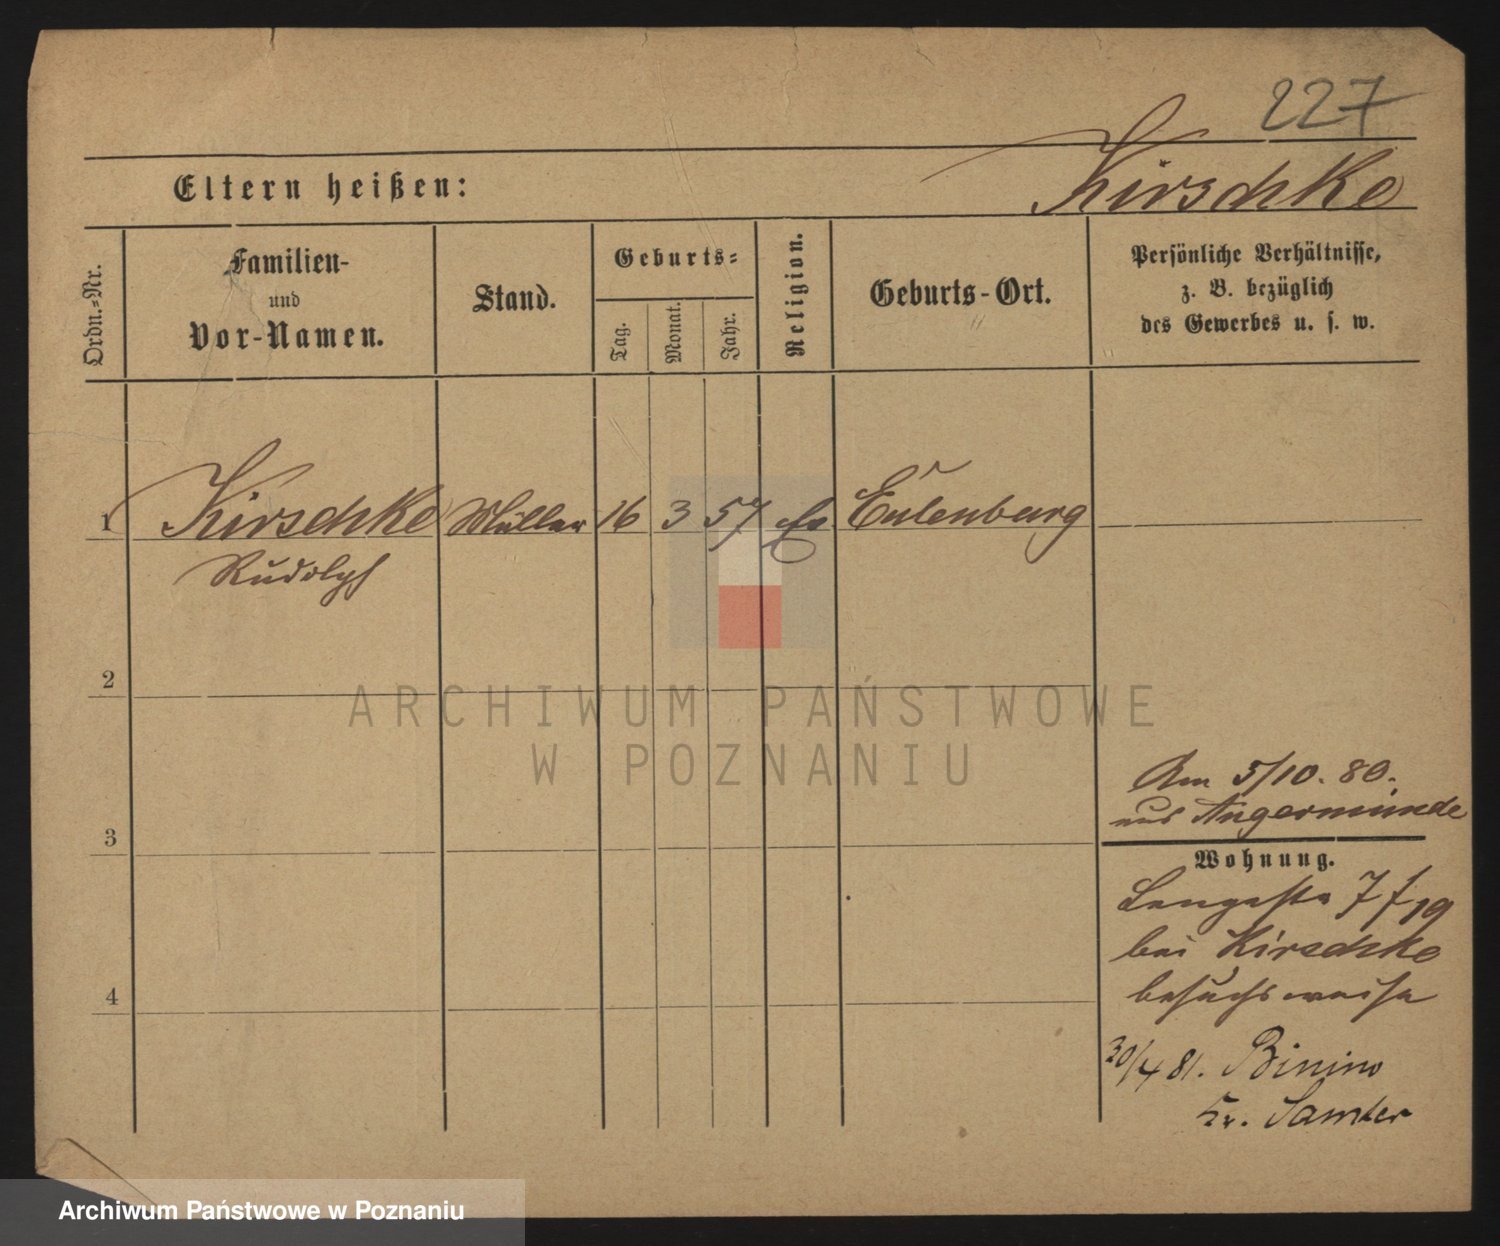 227
Eltern heißen:
Kirschke
Ordn.-Nr.
Familien-
und
Vor-Namen.
Stand.
Geburts-
Tag.
Monat.
Jahr.
Religion.
Geburts-Ort.
Persönliche Verhältnisse,
z. B. bezüglich
des Gewerbes u. s. w.
1 Kirschke Müller 16 3 57 Ev Eulenburg
Rudolph
2
ARCHIWUM PAŃSTWOWE
W POZNANIU
3
4
Am 5/10. 80.
aus Angermünde
Wohnung.
Langestr 7
bei Kirschke
besuchsweise
30/4 81. Binino
Kr. Samter
Archiwum Państwowe w Poznaniu